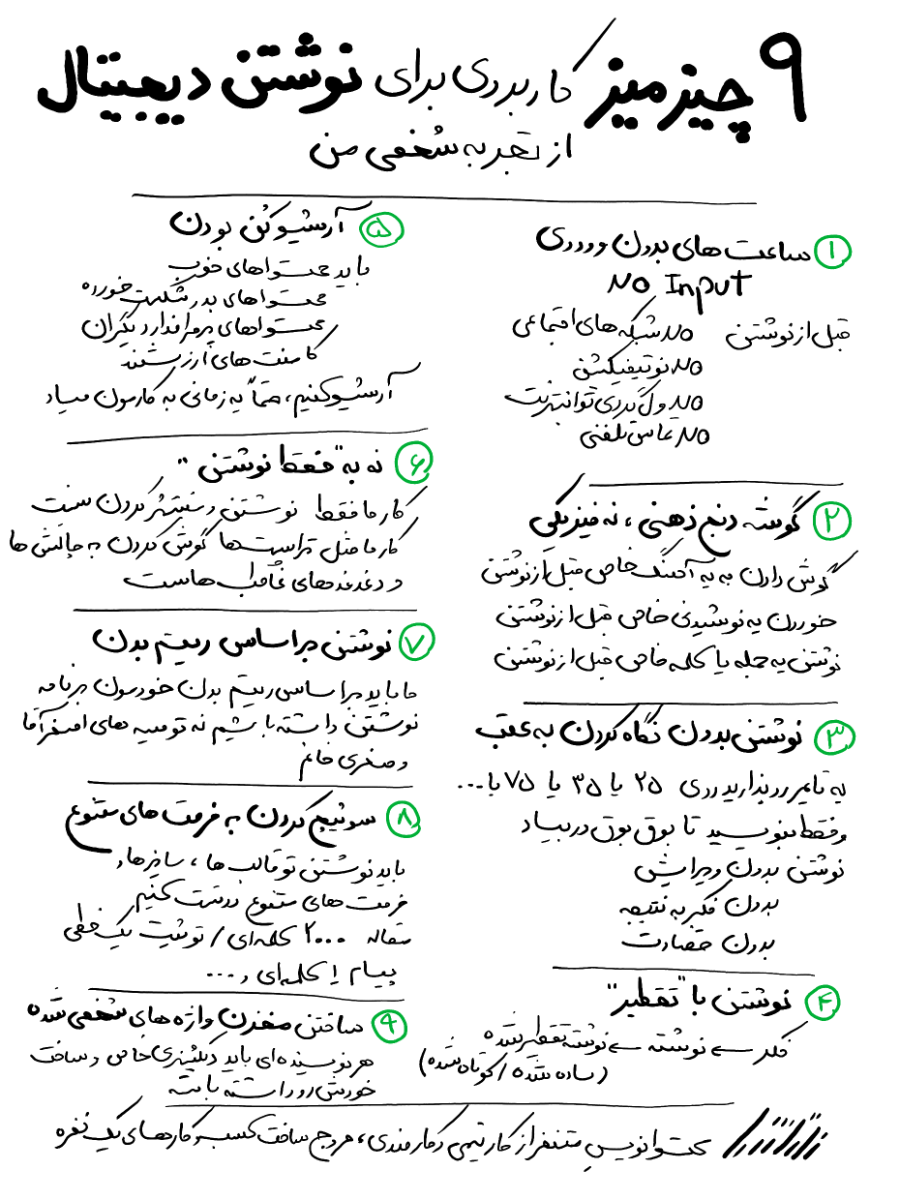 ۹ چیز میز کاربردی برای نوشتن دیجیتال
از تجربه شخصی من
۱ ساعت های بدون ورودی
No Input
قبل از نوشتن No شبکه های اجتماعی
No نوتیفیکیشن
No ولگردی تو اینترنت
No تماس تلفنی
۲ گوشه دنج ذهنی، نه فیزیکی
گوش دادن به یه آهنگ خاص قبل از نوشتن
خوردن یه نوشیدنی خاص قبل از نوشتن
نوشتن یه جمله یا کلمه خاص قبل از نوشتن
۳ نوشتن بدون نگاه کردن به عقب
یه تایمر رو بذارید روی ۲۵ یا ۳۵ یا ۷۵ یا ...
و فقط بنویسید تا بوق بوق دربیاد
نوشتن بدون ویرایش
بدون فکر به نتیجه
بدون قضاوت
۴ نوشتن با "تقطیر"
فکر ← نوشته ← نوشته تقطیر شده
(ساده شده / کوتاه شده)
۵ آرشیو کُن بودن
باید محتواهای خوب
محتواهای بد و شکست خورده
محتواهای پرطرفدار دیگران
کامنت های ارزشمند
آرشیو کنیم، حتماً یه زمانی به کارمون میاد
۶ نه به "فقط نوشتن"
کار ما فقط نوشتن و منتشر کردن نیست
کار ما مثل تراپیست‌ها گوش کردن به چالش ها
و دغدغه‌های مخاطب هاست
۷ نوشتن بر اساس ریتم بدن
ما باید بر اساس ریتم بدن خودمون برنامه
نوشتن داشته باشیم نه توصیه های اصغر آقا
و صغری خانم
۸ سوئیچ کردن به فرمت های متنوع
باید نوشتن تو قالب ها، سایزها و
فرمت های متنوع رو تست کنیم
مقاله ۲۰۰۰ کلمه‌ای / توئیت یک خطی
پیام ۱۰ کلمه‌ای و ...
۹ ساختن مخزن واژه های شخصی شده
هر نویسنده‌ای باید دیکشنری خاص و ساخت
خودش رو داشته باشه
محتوا نویسِ متنفر از کار تیمی و کارمندی، مروج ساخت کسب و کارهای یک نفره